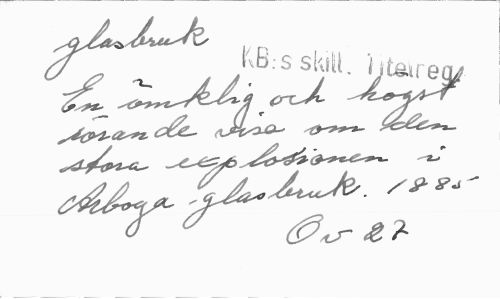 glasbruk
KB:s skill. Titelreg.
En ömklig och högst
rörande visa om den
stora explosionen i
Arboga glasbruk. 1885
Ov 27